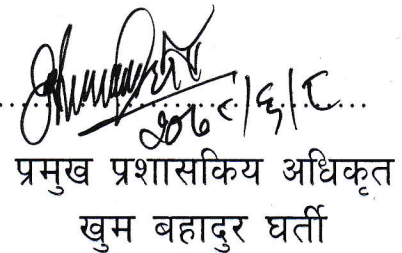 २०७८/६/८
प्रमुख प्रशासकिय अधिकृत
खुम बहादुर घर्ती